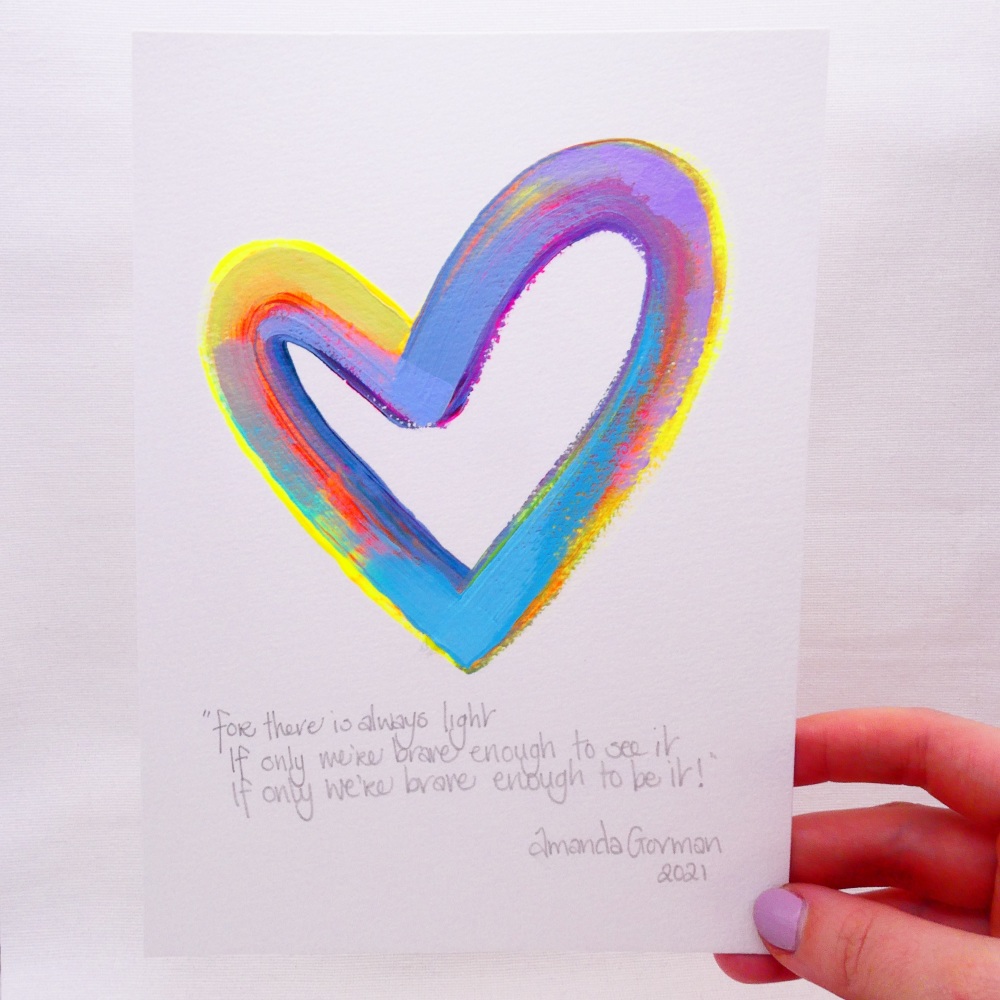 "For there is always light
If only we're brave enough to see it
If only we're brave enough to be it!"
Amanda Gorman
2021